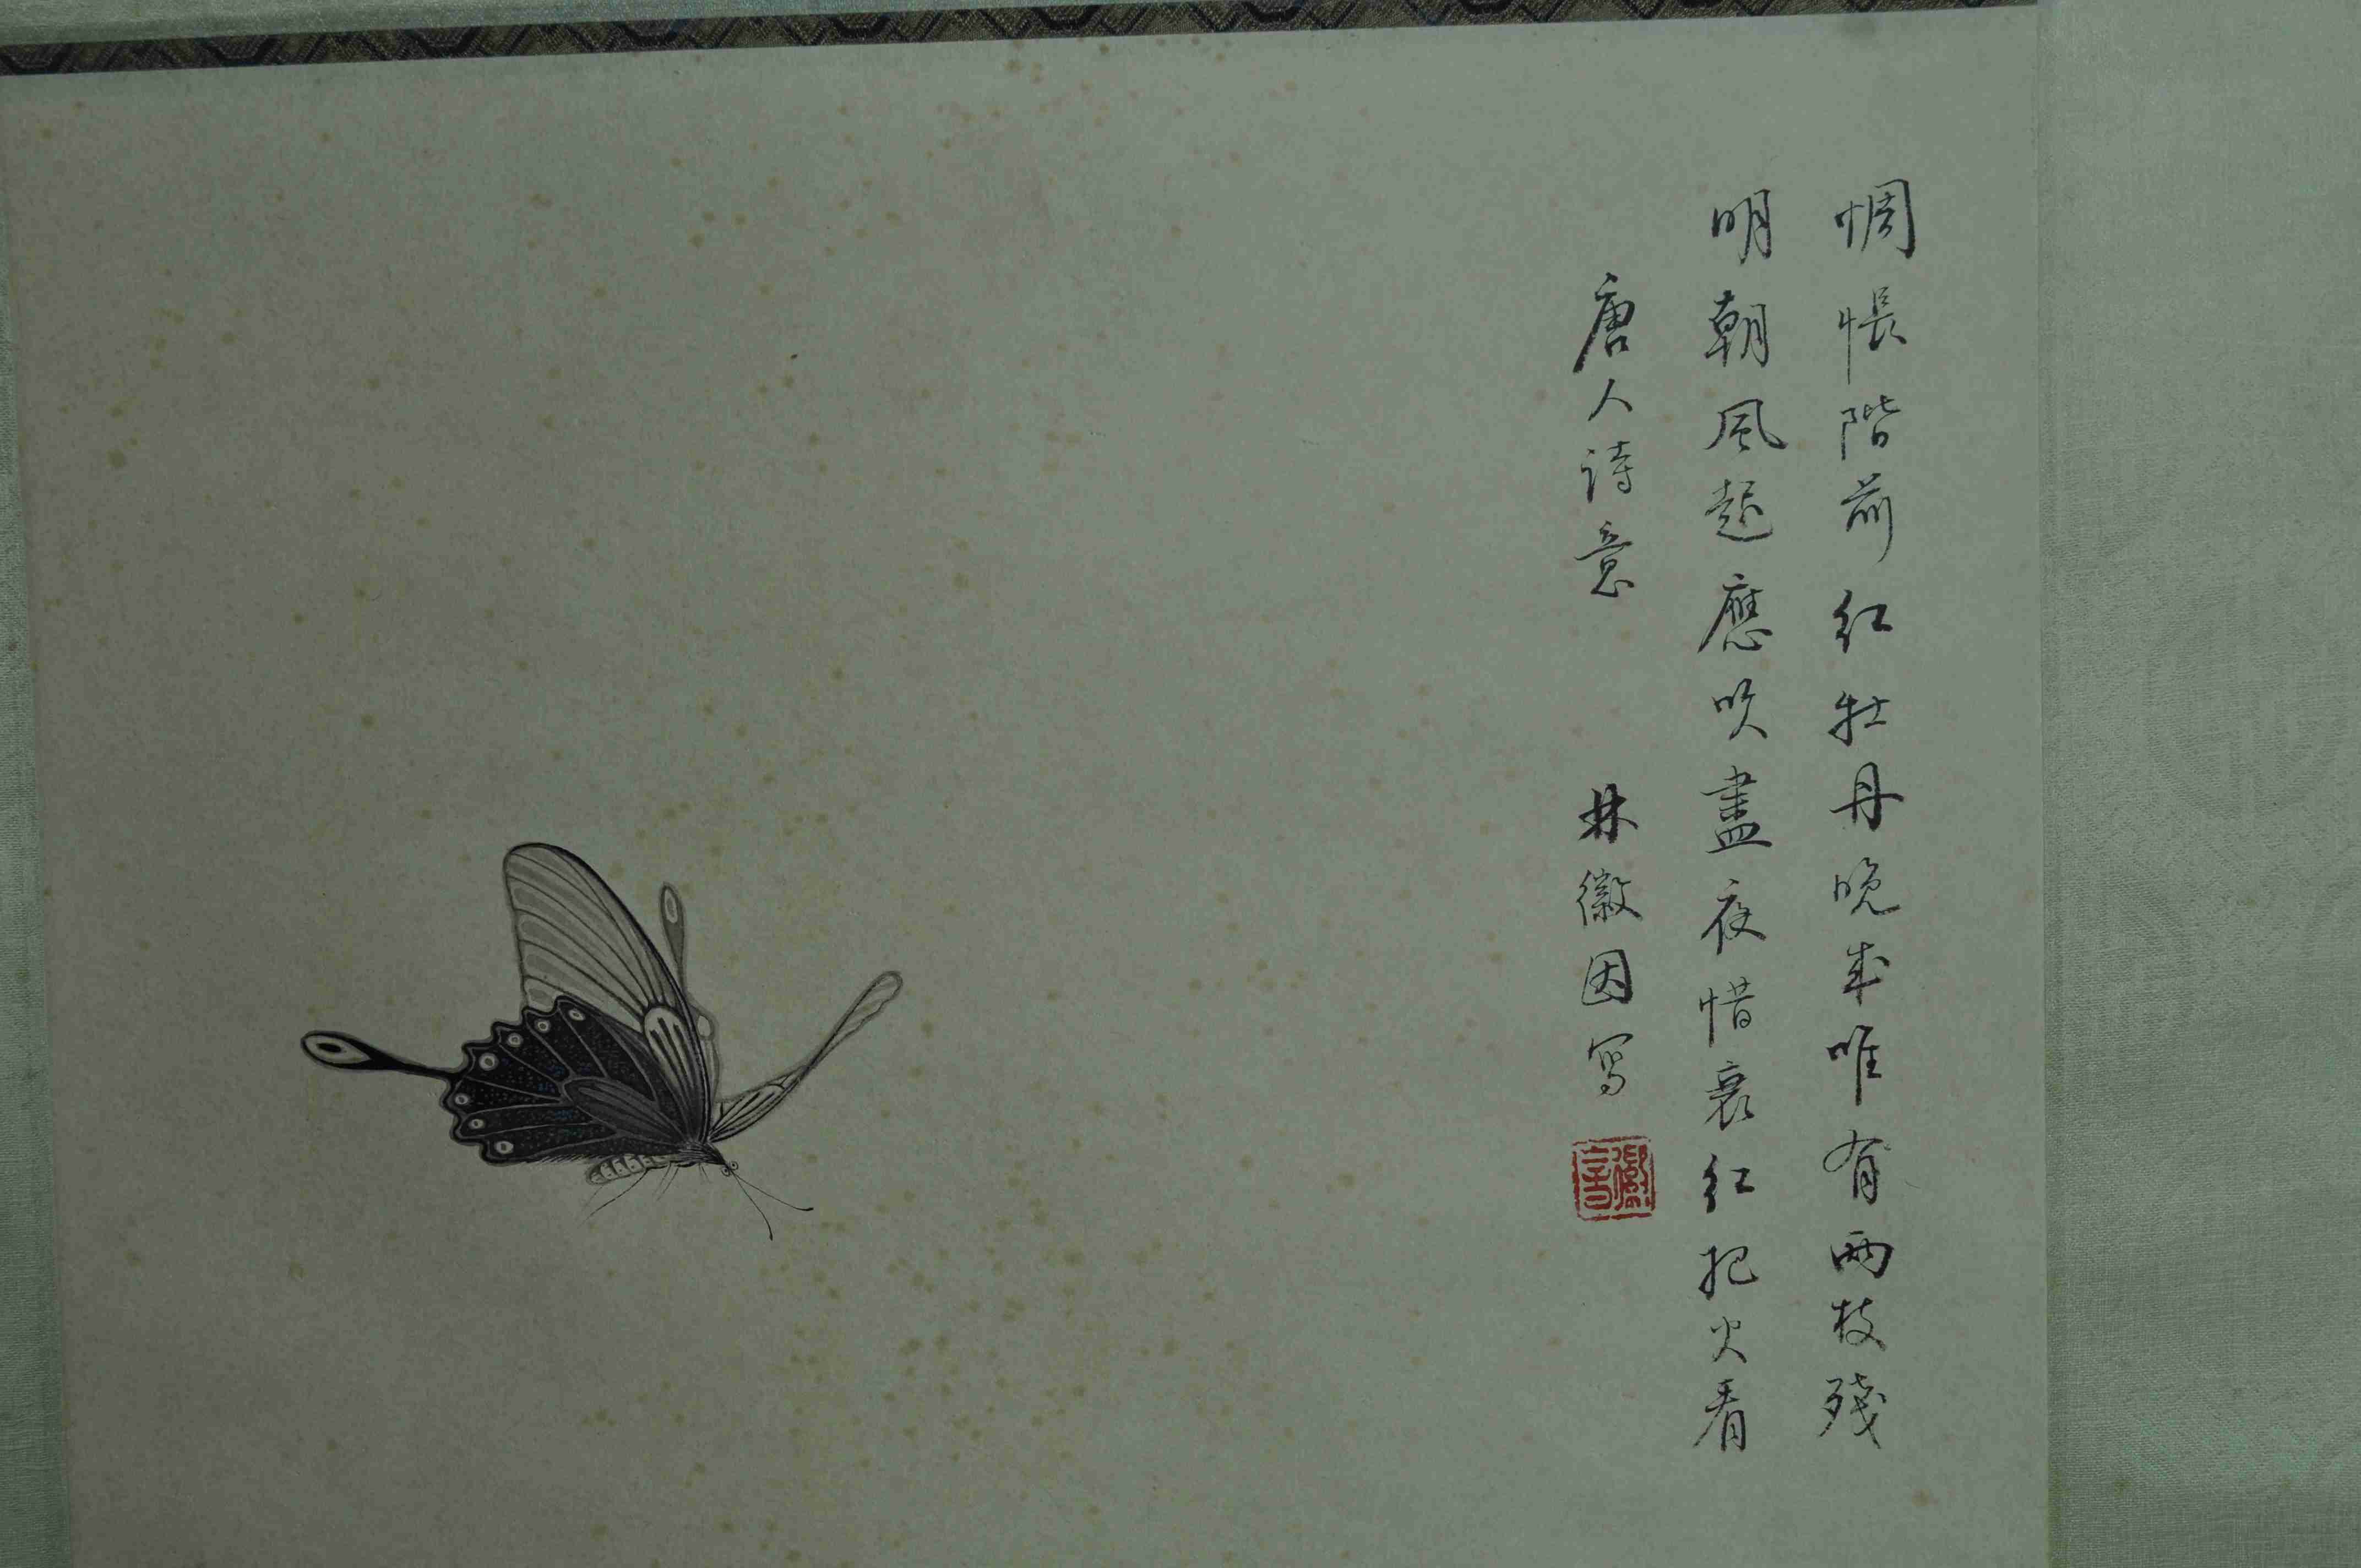 惆悵階前紅牡丹晚來唯有兩枝殘
明朝風起應吹盡夜惜衰紅把火看
唐人詩意
林徽因寫
徽音